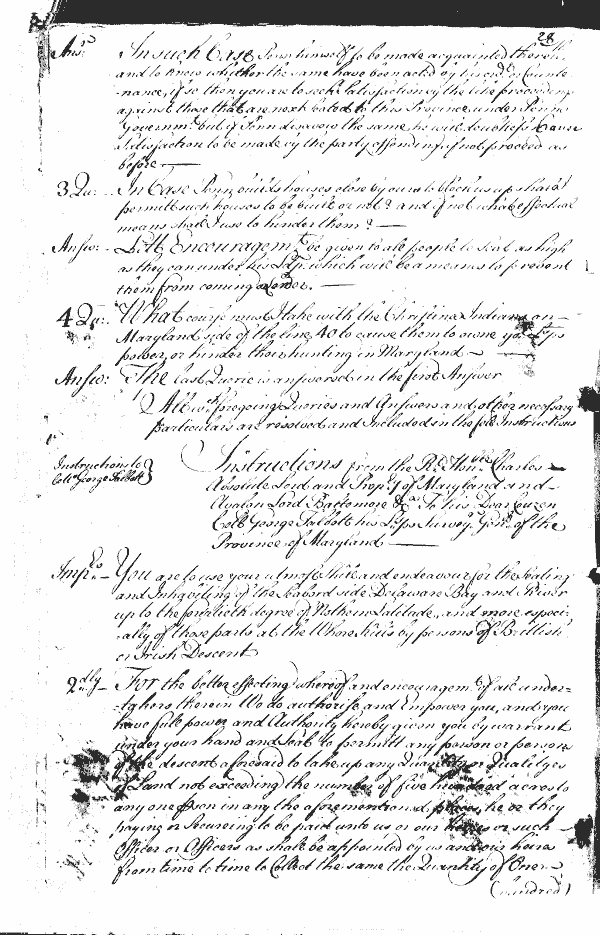 28
Answ: In such Case Penn himself to be made acquainted therewith
and to know whither the same have been acted by his order or Counte
nance, if so then you are to seek satisfaction by the like proceeding
against those that are next Seated to this Province under Penns
Governmt: but if Penn disavow the same he will doubtless Cause
satisfaction to be made by the party offending if not proceed as
before —
3 Qu: In Case Penn builds houses close by ours to block us up shall I
permitt such houses to be built or not? and if not what effectual
means shall I use to hinder them? —
Answ: Lett Encouragemt: be given to all people to Seat as high
as they can under his Ldp. which will be a means to prevent
them from coming lower. —
4 Qu: What course must I take with the Christina Indians on
Maryland side of the line 40 to cause them to owne yor Ldps
power, or hinder their hunting in Maryland —
Answ: The last Querie is answered in the first Answer
All wch foregoing Queries and Answers and other necessary
particulars are resolved and Included in the foll. Instructions
Instructions to
Collo George Talbott
Instructions from the Rt. Honble Charles
Absolute Lord and Propry of Maryland and
Avalon Lord Baltemore &ca To his Dear Couzen
Collo George Talbott his Ldps Survey. Genll. of the
Province of Maryland —
Imprs. — You are to use your utmost skill and endeavour for the seating
and Inhabiting of the Seabord side Delaware Bay and River
up to the fortieth degree of Northern Latitude, and more especi-
-ally of those parts at the Whore kills by persons of Brittish
or Irish Descent
2dly — For the better effecting whereof and encouragemt. of all under-
-takers therein We do authorise and Empower you, and you
have full power and Authority hereby given you by warrant
under your hand and Seal to permitt any person or persons
of the descent aforesaid to take up any Quantity or Quantityes
of Land not exceeding the number of five hundred acres to
any one person in any the aforementioned places, he or they
paying or Secureing to be paid unto us or our heires or such
Officer or Officers as shall be appointed by us and our heires
from time to time to Collect the same the Quantity of One
(hundred)